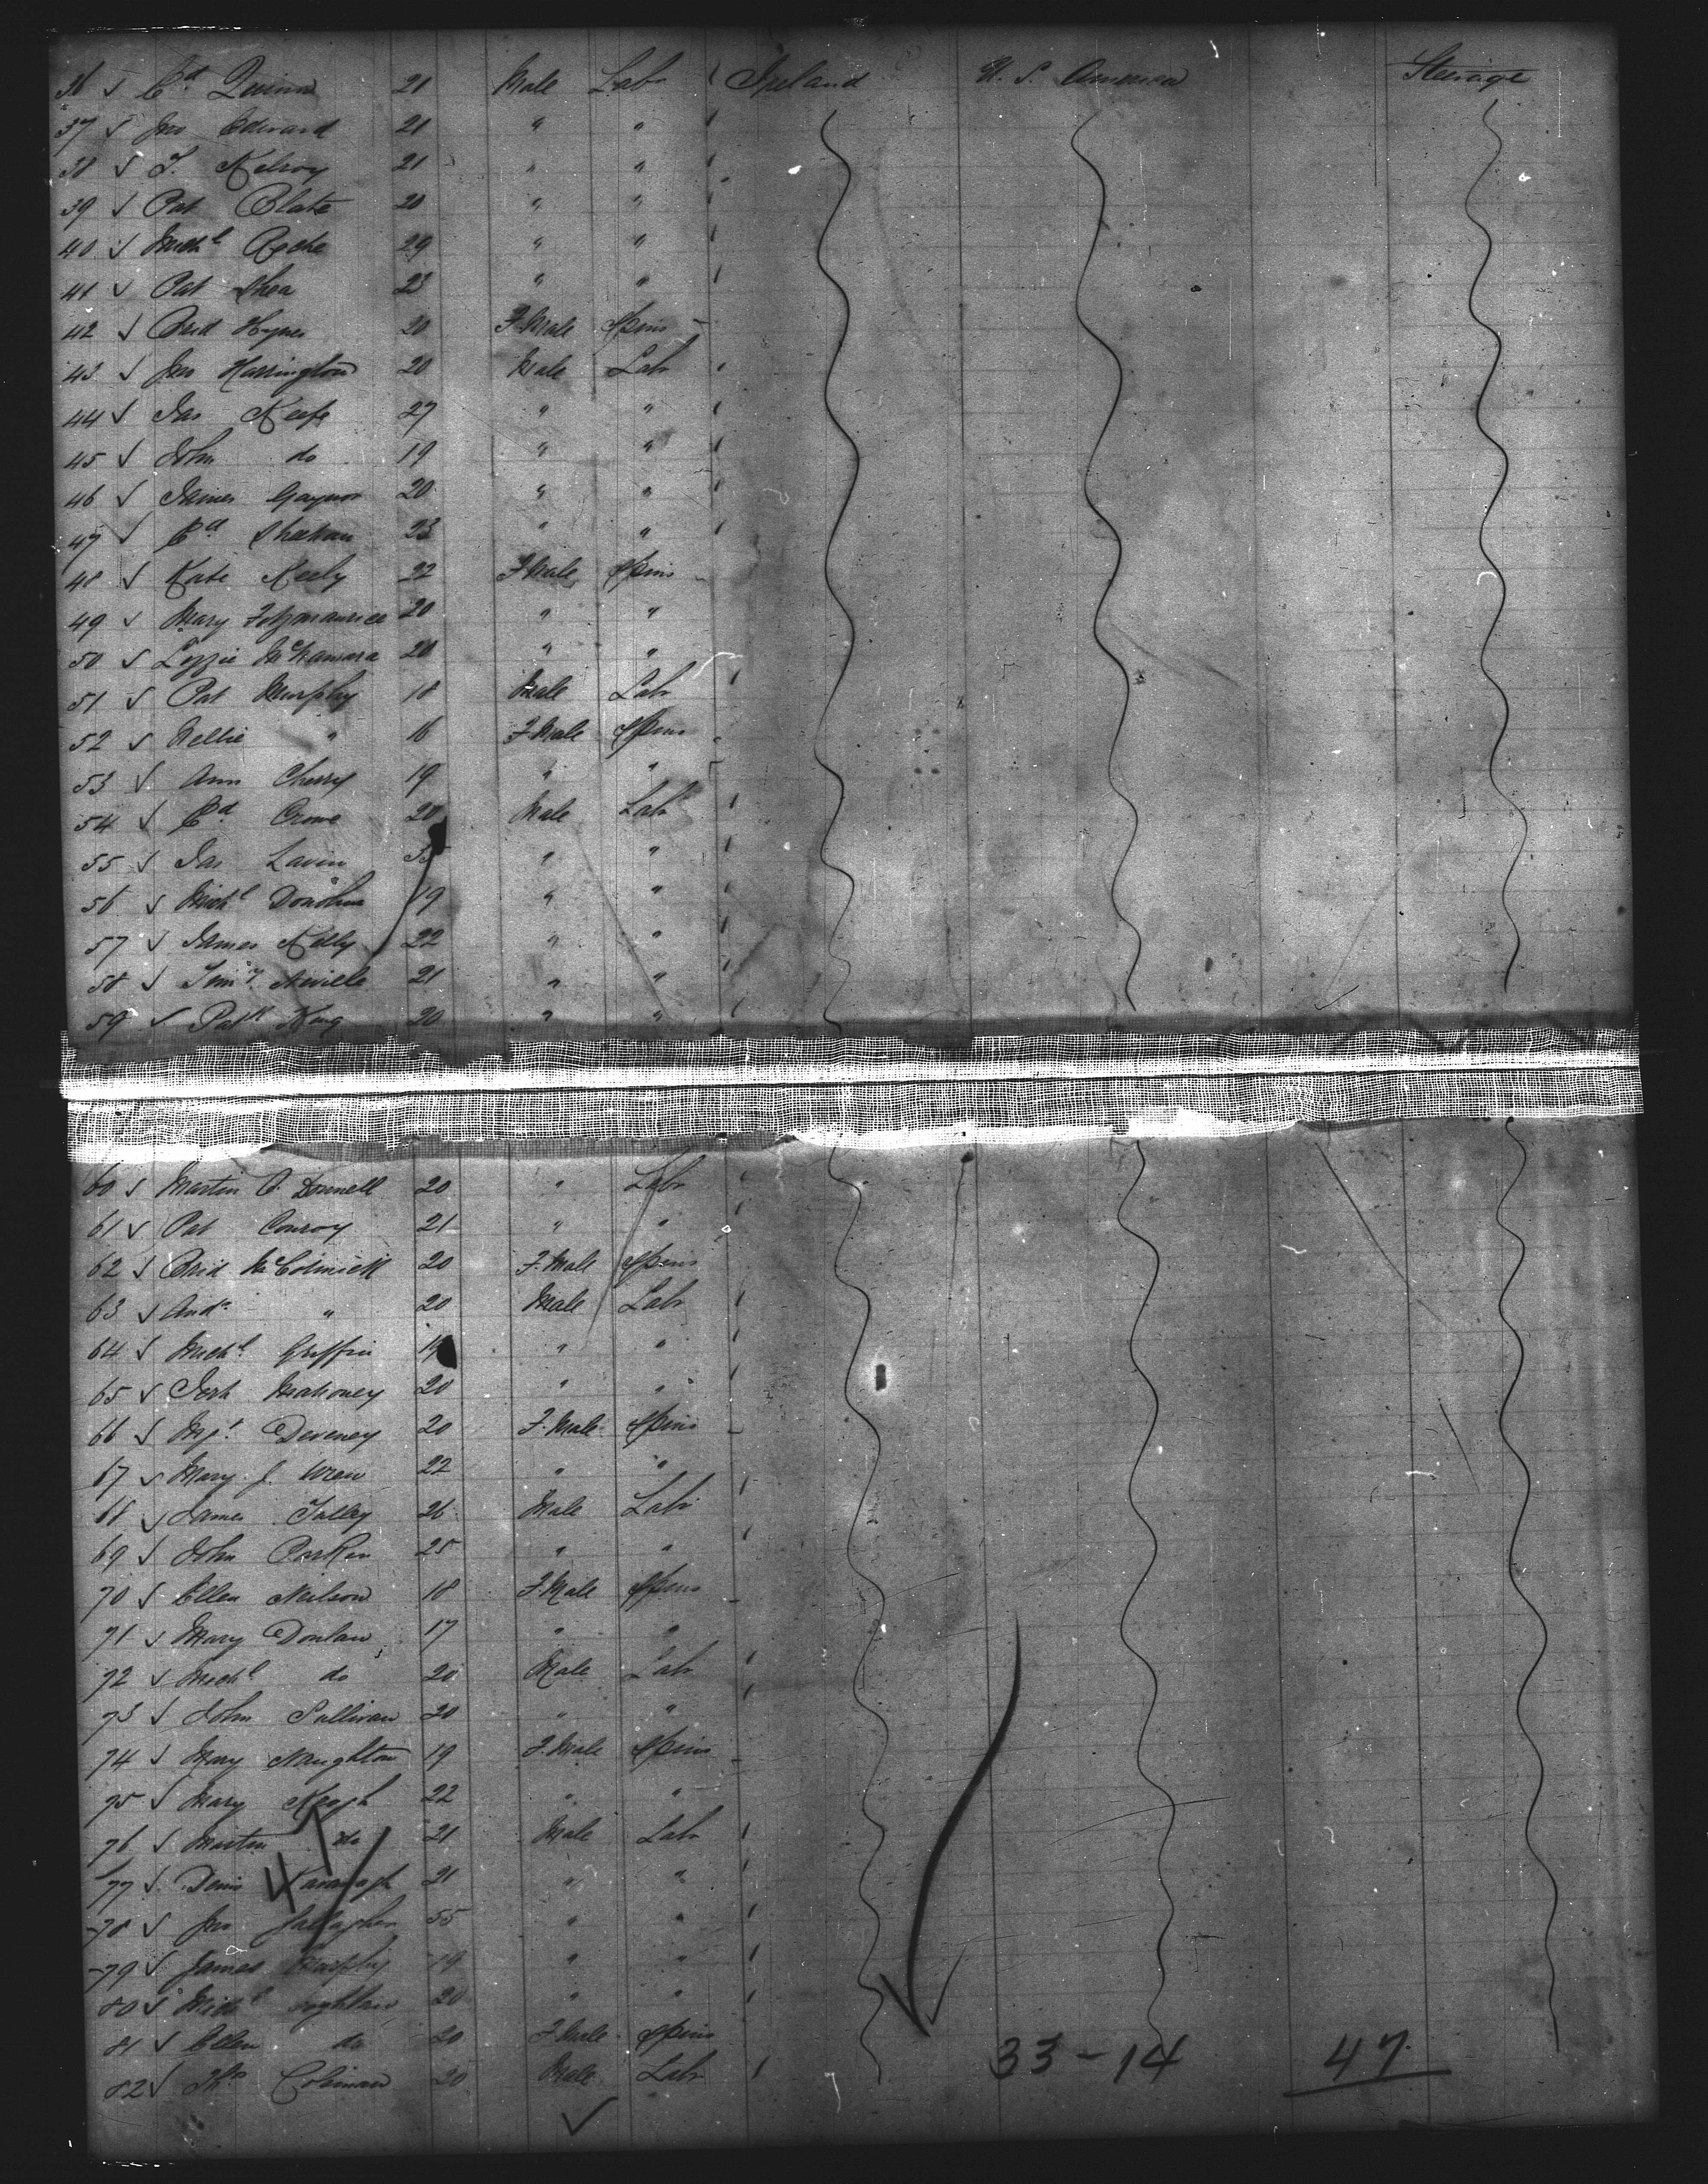 36 Ed Quinn 21 Male Lab Ireland U. S. America Steerage
37 Jno Edward 21 " "
38 T. Kelroy 21 " "
39 Pat Blake 20 " "
40 Michl Roche 29 " "
41 Pat Shea 23 " "
42 Brid Hynes 20 F.Male Spins
43 Jno Harrington 20 Male Lab
44 Jas Keefe 27 " "
45 John do 19 " "
46 James Gaynor 20 " "
47 Ed Sheehan 23 " "
48 Kate Keely 22 F.Male Spins
49 Mary Fitzmaurice 20 " "
50 Lizzie McNamara 20 " "
51 Pat Murphy 18 Male Lab
52 Nellie " 16 F.Male Spins
53 Ann Cherry 19 " "
54 Ed Crowe 20 Male Lab
55 Jas Lavin 35 " "
56 Michl Donohue 19 " "
57 James Kelly 22 " "
58 Timy Neville 21 " "
59 Patk King 20 " "
60 Martin O. Donnell 20 " Lab
61 Pat Conroy 21 " "
62 Brid McCormick 20 F.Male Spins
63 Andw " 20 Male Lab
64 Michl Griffin 19 " "
65 Jerh Mahoney 20 " "
66 Mgt Deveney 20 F.Male Spins
67 Mary J. Wren 22 " "
68 James Talley 26 Male Lab
69 John Parker 25 " "
70 Ellen Neilson 18 F.Male Spins
71 Mary Donlan 17 " "
72 Michl do 20 Male Lab
73 John Sullivan 20 " "
74 Mary Naughton 19 F.Male Spins
75 Mary Keogh 22 " "
76 Martin do 21 Male Lab
77 Denis Kavanagh 21 " "
78 Jno Gallagher 55 " "
79 James Murphy 19 " "
80 Michl 20 " "
81 Ellen do 20 F.Male Spins
82 Ths Coleman 20 Male Lab
33-14 47